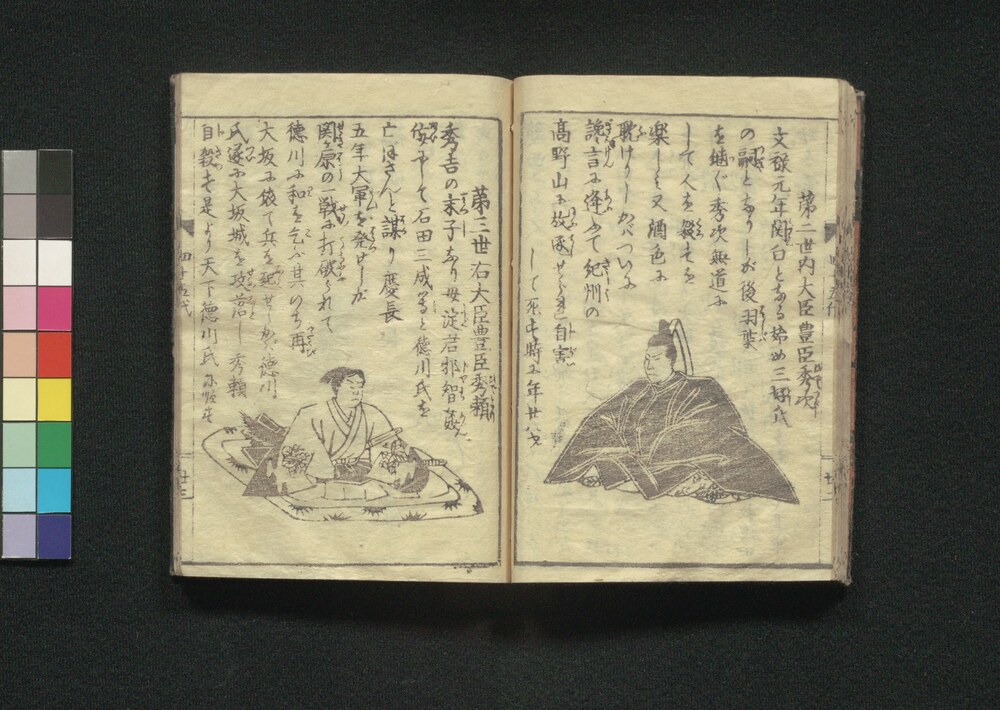 第二世内大臣豊臣秀次
文禄元年関白となる始め三好氏
の嗣となりしが後羽柴
を継ぐ秀次無道に
して人を殺すを
楽しとし又酒色に
耽けりしかバついに
讒言に逢ふて紀州の
高野山に放逐せられ自害
して死す時に年廿八才
第三世右大臣豊臣秀頼
秀吉の末子なり母淀君邪智姦
佞にして石田三成等と徳川氏を
亡ぼさんと謀り慶長
五年大軍を発せしが
関ヶ原の一戦に打破られて
徳川に和を乞ふ其のち再
大坂に於て兵を起せしが徳川
氏遂に大坂城を攻落し秀頼
自殺す是より天下徳川氏に帰す
四十五代
廿三